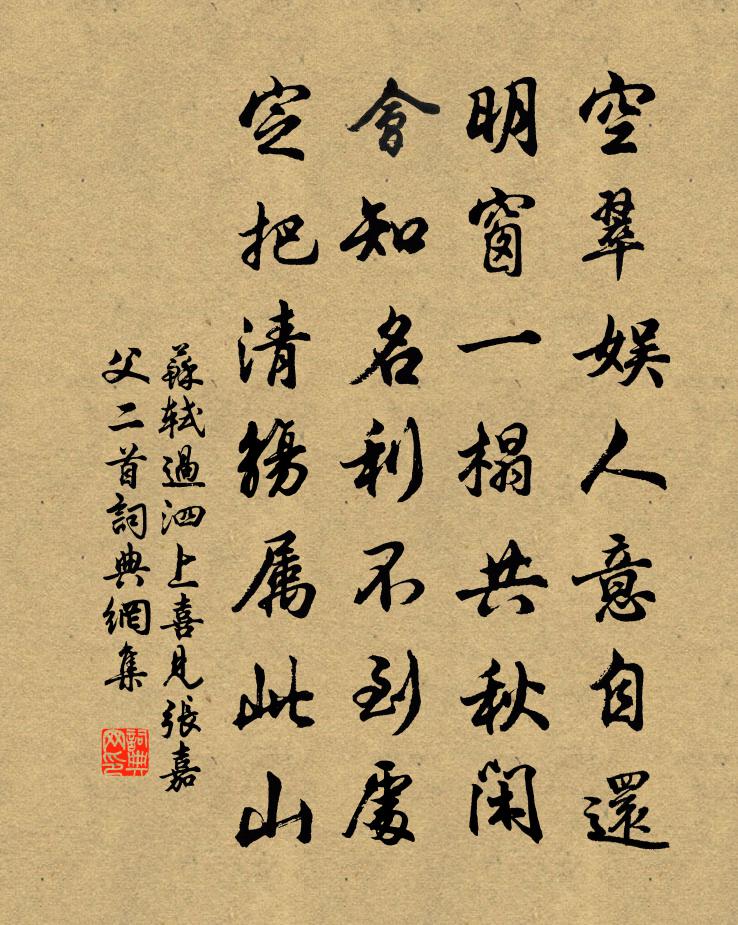 空翠娱人意自還
明窗一榻共秋閑
會知名利不到處
定把清觴属此山
蘇軾過泗上喜見張嘉
父二首詞典網集
詞典
网印